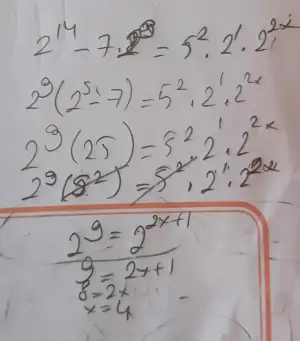 2¹⁴ - 7 · 2⁹ = 5² · 2¹ · 2²ˣ
2⁹ (2⁵ - 7) = 5² · 2¹ · 2²ˣ
2⁹ (25) = 5² · 2¹ · 2²ˣ
2⁹ (5²) = 5² · 2¹ · 2²ˣ
2⁹ = 2²ˣ⁺¹
9 = 2x+1
8 = 2x
x = 4